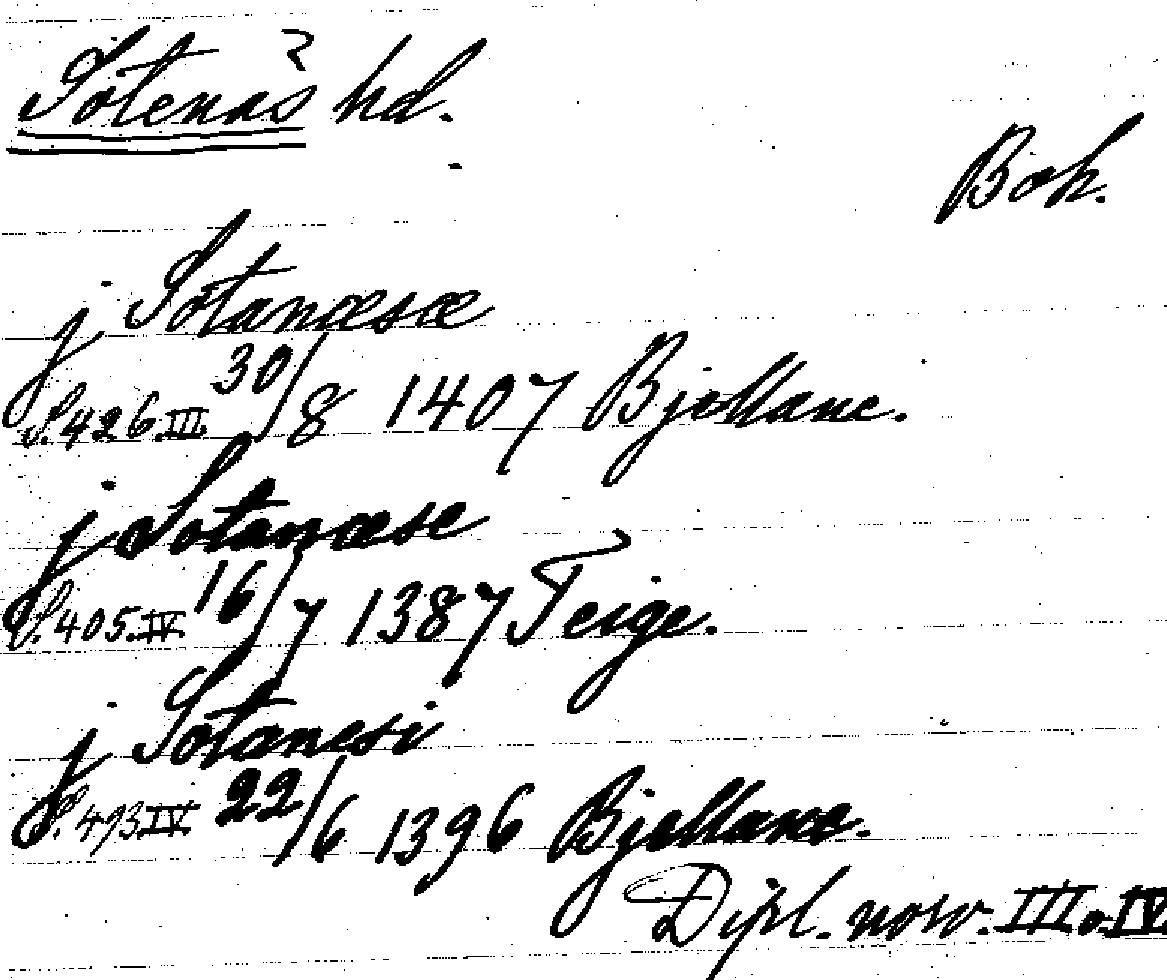 Sotenäs hd.
Boh.
j Sotanæsæ
S. 426 III. 30/8 1407 Bjellane.
j Sotanæse
S. 405. IV. 16/7 1387 Teige.
j Sotanesi
S. 493 IV. 22/6 1396 Bjellane.
Dipl. norv. III o. IV.